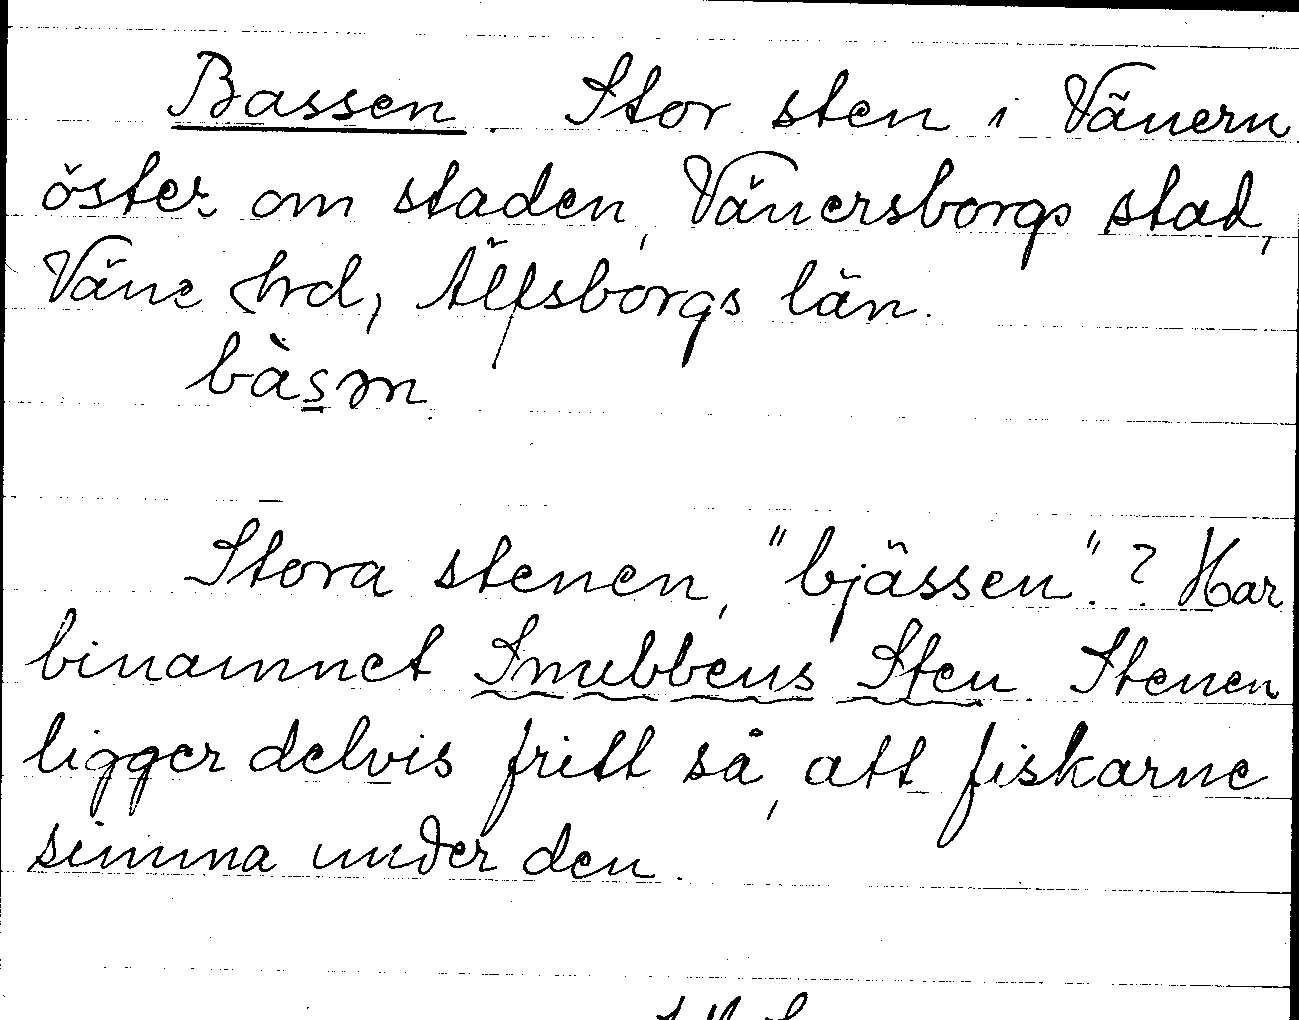 Bassen. Stor sten i Vänern
öster om staden, Vänersborgs stad,
Väne hrd, Älfsborgs län.
bàsın.
Stora stenen, "bjässen". ? Har
binamnet Snubbens Sten. Stenen
ligger delvis fritt så, att fiskarne
simma under den.